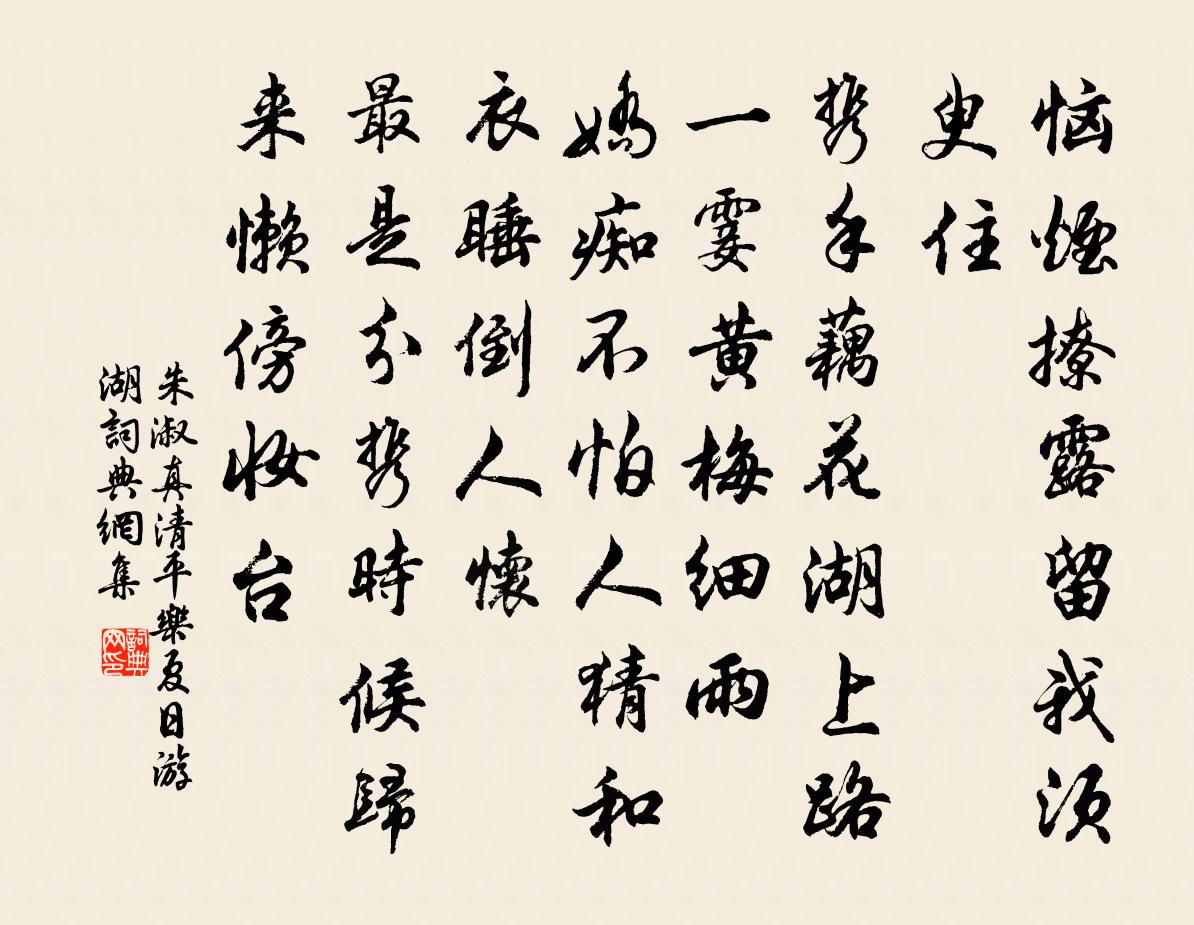 恼煙撩露留我须
臾住
携手藕花湖上路
一霎黄梅细雨
嬌痴不怕人猜和
衣睡倒人懷
最是分携時候歸
来懒傍妆台
朱淑真清平樂夏日游
湖詞典網集
詞典网印